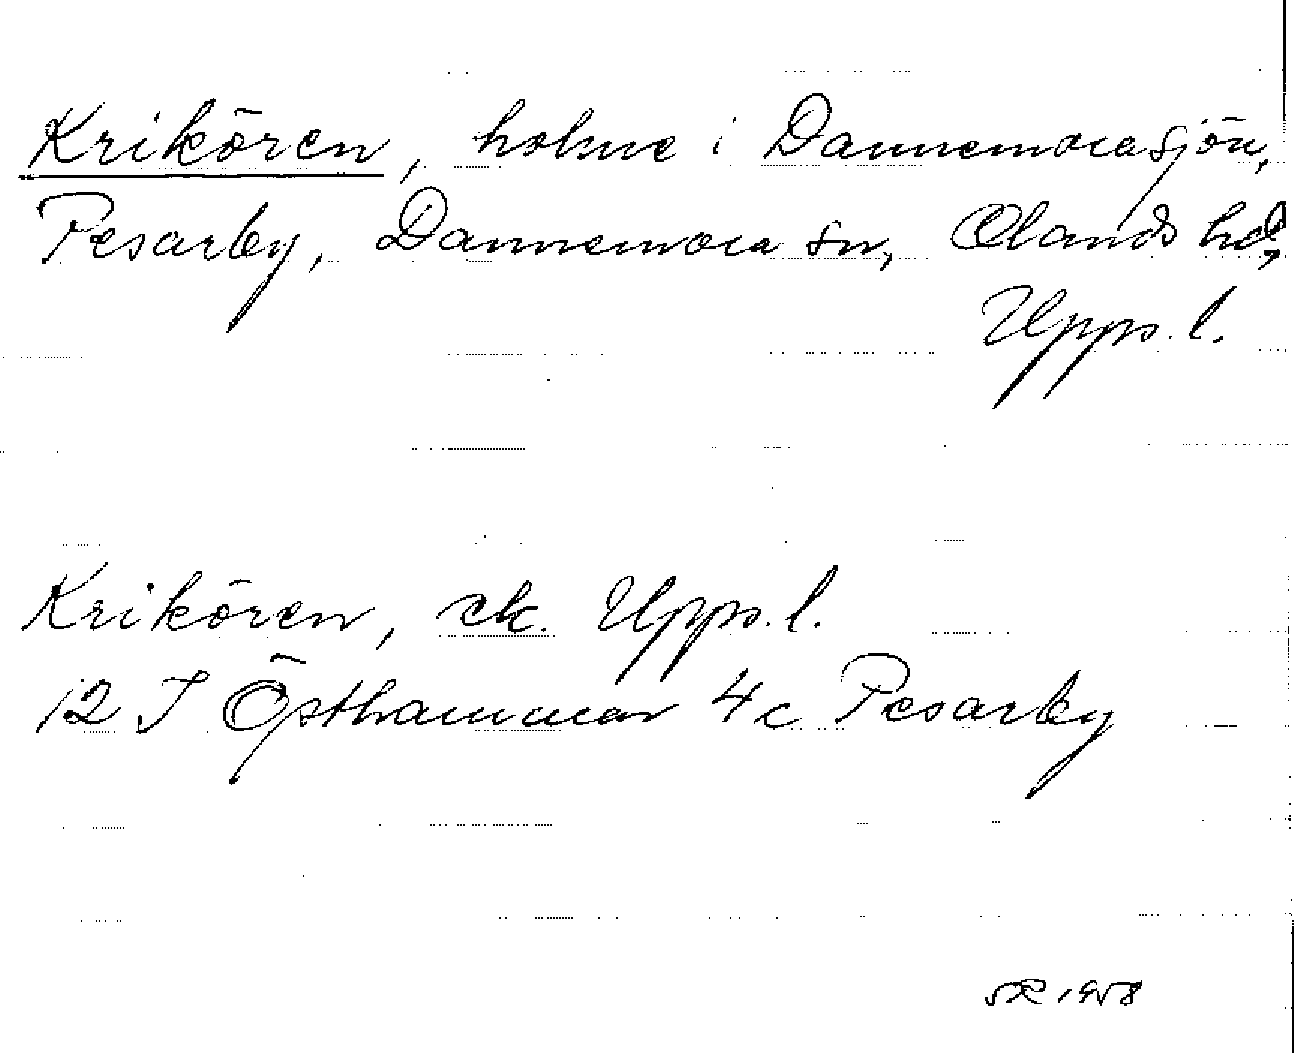 Krikören, holme i Dannemorasjön,
Pesarby, Dannemora sn, Olands hd,
Upps. l.
Krikören, ek. Upps. l.
12 I Östhammar 4c Pesarby
1958